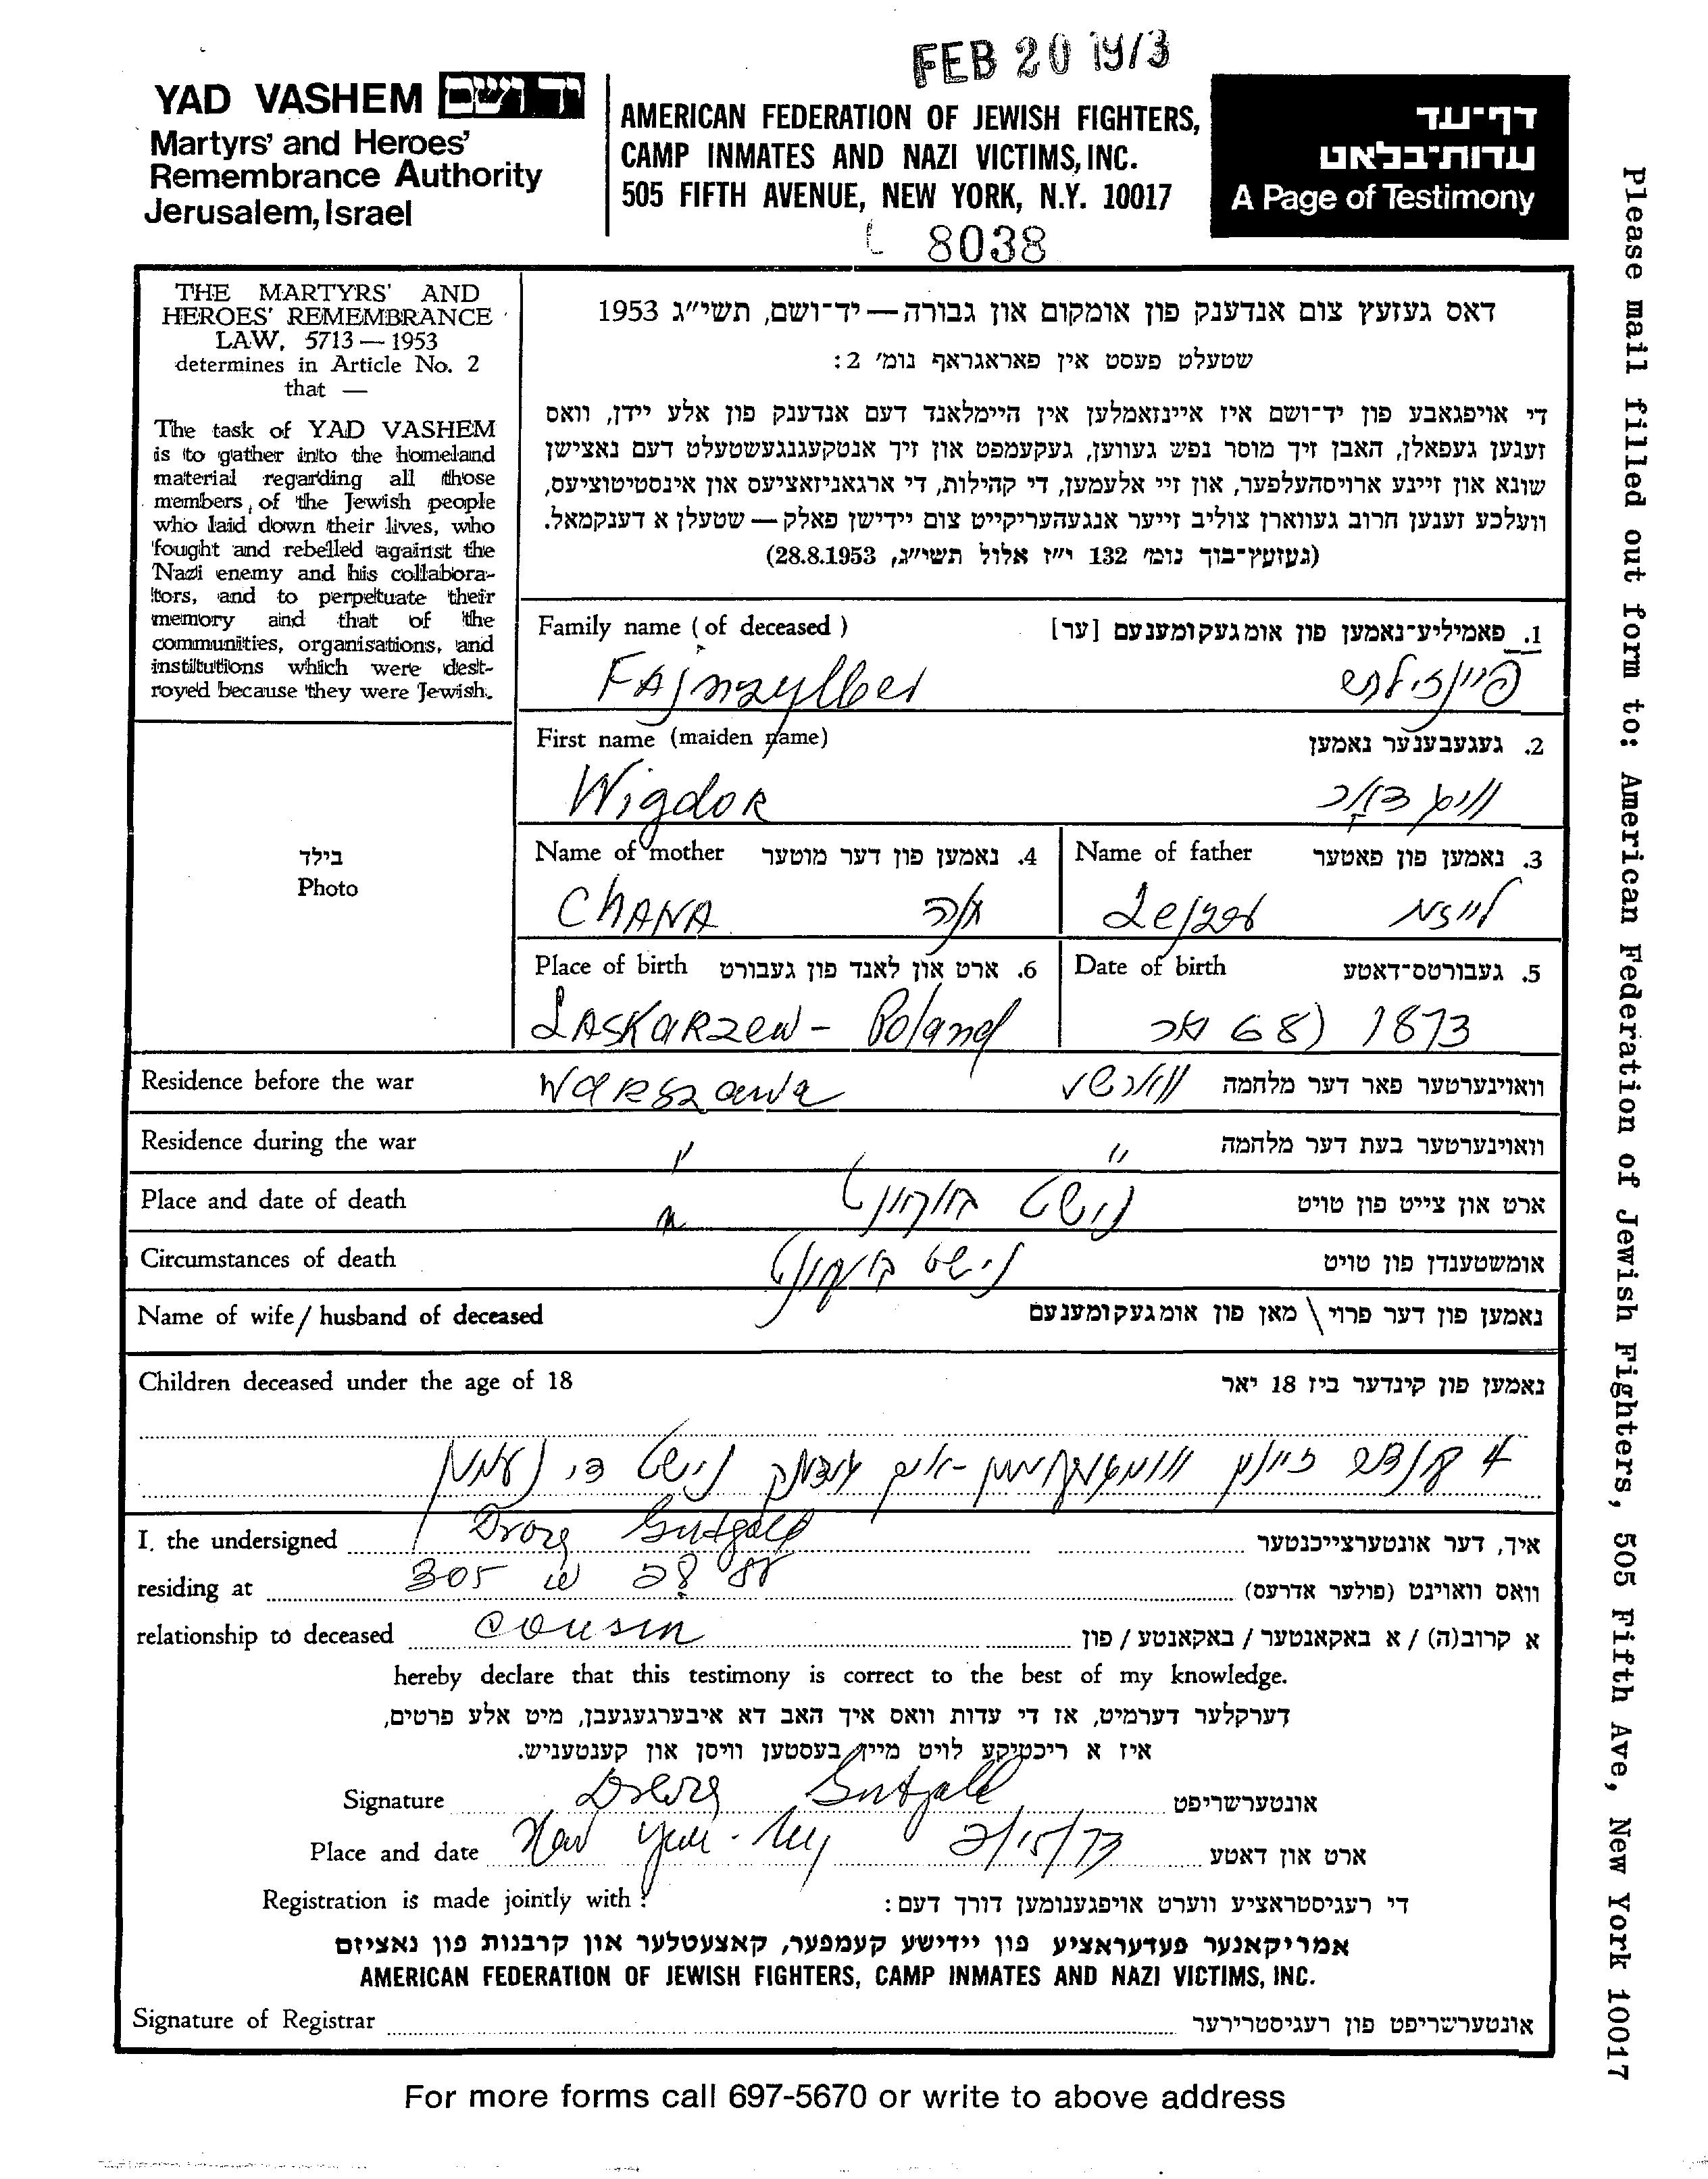 FEB 20 1973
YAD VASHEM יד ושם
Martyrs' and Heroes'
Remembrance Authority
Jerusalem, Israel
AMERICAN FEDERATION OF JEWISH FIGHTERS,
CAMP INMATES AND NAZI VICTIMS, INC.
505 FIFTH AVENUE, NEW YORK, N.Y. 10017
8038
דף־עד
עדות־בלאט
A Page of Testimony
Please mail filled out form to: American Federation of Jewish Fighters, 505 Fifth Ave, New York 10017
THE MARTYRS' AND
HEROES' REMEMBRANCE
LAW, 5713 — 1953
determines in Article No. 2
that —
The task of YAD VASHEM
is to gather into the homeland
material regarding all those
members of the Jewish people
who laid down their lives, who
fought and rebelled against the
Nazi enemy and his collabora-
tors, and to perpetuate their
memory and that of the
communities, organisations, and
institutions which were dest-
royed because they were Jewish.
דאס געזעץ צום אנדענק פון אומקום און גבורה — יד־ושם, תשי״ג 1953
שטעלט פעסט אין פאראגראף נומ׳ 2:
די אויפגאבע פון יד־ושם איז איינזאמלען אין היימלאנד דעם אנדענק פון אלע יידן, וואס
זענען געפאלן, האבן זיך מוסר נפש געווען, געקעמפט און זיך אנטקעגנגעשטעלט דעם נאצישן
שונא און זיינע ארויסהעלפער, און זיי אלעמען, די קהילות, די ארגאניזאציעס און אינסטיטוציעס,
וועלכע זענען חרוב געווארן צוליב זייער אנגעהעריקייט צום יידישן פאלק — שטעלן א דענקמאל.
(געזעץ־בוך נומ׳ 132 י״ז אלול תשי״ג, 28.8.1953)
Family name (of deceased) 1. פאמיליע־נאמען פון אומגעקומענעם [ער]
FAjnzylber פיינזילבער
First name (maiden name) 2. געגעבענער נאמען
Wigdor וויגדאר
Name of mother 4. נאמען פון דער מוטער
CHANA חנה
Name of father 3. נאמען פון פאטער
Lejzer לייזער
Place of birth 6. ארט און לאנד פון געבורט
LASKARZEW - Poland
Date of birth 5. געבורטס־דאטע
1873 (68 יאר
בילד
Photo
Residence before the war Warszawa ווארשע וואוינערטער פאר דער מלחמה
Residence during the war " " וואוינערטער בעת דער מלחמה
Place and date of death " נישט באקאנט ארט און צייט פון טויט
Circumstances of death נישט באקאנט אומשטענדן פון טויט
Name of wife / husband of deceased נאמען פון דער פרוי \ מאן פון אומגעקומענעם
Children deceased under the age of 18 נאמען פון קינדער ביז 18 יאר
4 קינדער זיינען אומגעקומען - איך געדענק נישט די נעמען
I, the undersigned Gutgold איך, דער אונטערצייכנטער
residing at 305 W 28 St וואס וואוינט (פולער אדרעס)
relationship to deceased cousin א קרוב(ה) / א באקאנטער / באקאנטע / פון
hereby declare that this testimony is correct to the best of my knowledge.
דערקלער דערמיט, אז די עדות וואס איך האב דא איבערגעגעבן, מיט אלע פרטים,
איז א ריכטיקע לויט מיין בעסטען וויסן און קענטעניש.
Signature Gutgold אונטערשריפט
Place and date New York - NY 2/15/73 ארט און דאטע
Registration is made jointly with: די רעגיסטראציע ווערט אויפגענומען דורך דעם:
אמריקאנער פעדעראציע פון יידישע קעמפער, קאצעטלער און קרבנות פון נאציזם
AMERICAN FEDERATION OF JEWISH FIGHTERS, CAMP INMATES AND NAZI VICTIMS, INC.
Signature of Registrar אונטערשריפט פון רעגיסטרירער
For more forms call 697-5670 or write to above address